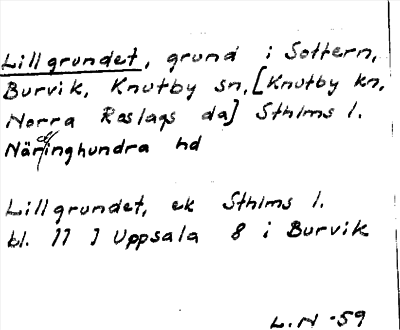 Lillgrundet, grund i Sottern,
Burvik, Knutby sn, [Knutby kn,
Norra Roslags da] Sthlms l.
Närdinghundra hd
Lillgrundet, ek Sthlms l.
bl. 77 J Uppsala 8 i Burvik
L.N -59